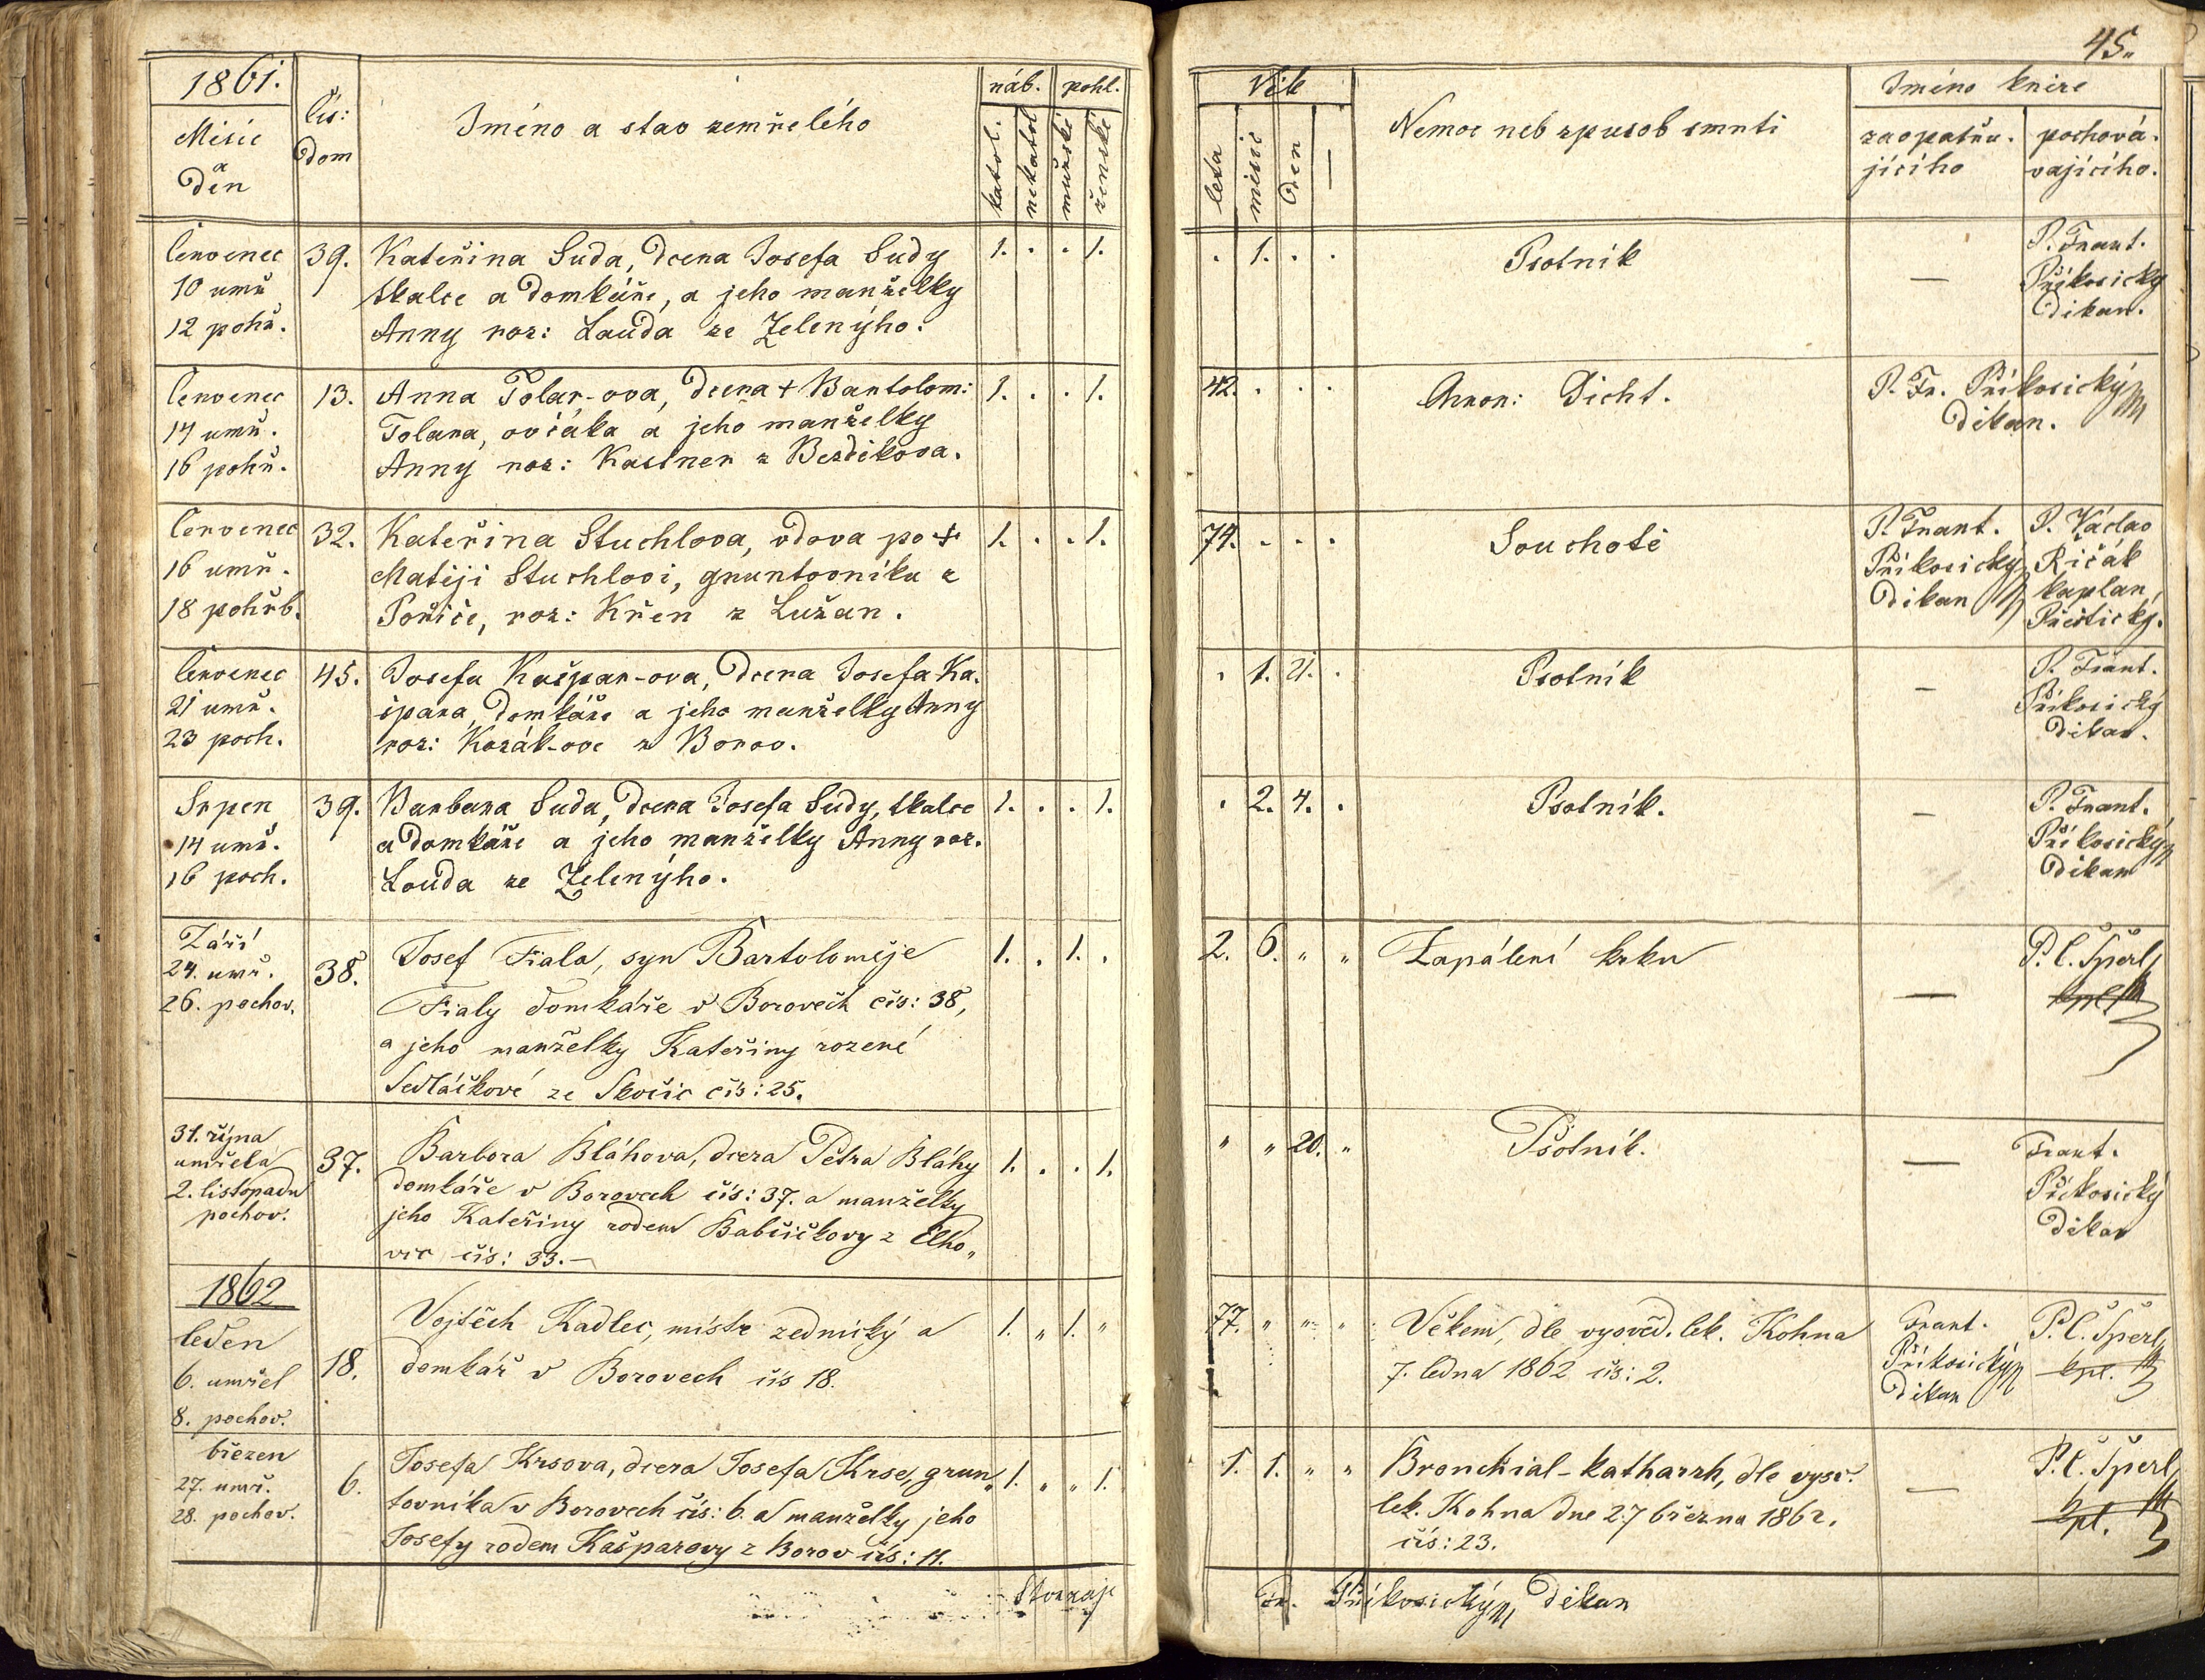 1861.
Měsíc
a
Den
čís:
Dom
Jméno a stav zemřelého
náb.
pohl.
katol.
nekatol
mužské
ženské
Červenec
10 umř
12 pohř.
39.
Kateřina Suda, dcera Josefa Sudy
tkalce a domkáře, a jeho manželky
Anny roz: Lauda ze Zelenýho.
1. . . 1.
Červenec
14 umř.
16 pohř.
13.
Anna Tolar-ova, dcera + Bartolom:
Tolara, ovčáka a jeho manželky
Anny roz: Kastner z Bezdikova.
1. . . 1.
Červenec
16 umř.
18 pohřb.
32.
Kateřina Stuchlova, vdova po +
Matěji Stuchlovi, gruntovníku z
Poříče, roz: Křen z Lužan.
1. . . 1.
Červenec
21 umř.
23 poch.
45.
Josefa Kašpar-ova, dcera Josefa Ka-
špara, domkáře a jeho manželky Anny
roz: Kozák-ove z Borov.
Srpen
14 umř.
16 poch.
39.
Barbara Suda, dcera Josefa Sudy, tkalce
a domkáře a jeho manželky Anny roz.
Louda ze Zelenýho.
1. . . 1.
Září
24. umř.
26. pochov.
38.
Josef Fiala, syn Bartoloměje
Fialy domkáře v Borovech čís: 38,
a jeho manželky Kateřiny rozené
Sedláčkové ze Skočic čís: 25.
1. . 1. .
31. října
umřela
2. listopadu
pochov.
37.
Barbora Bláhova, dcera Petra Bláhy
domkáře v Borovech čís: 37. a manželky
jeho Kateřiny rodem Babčičkovy z Elho„
vic čís: 33.—
1. . . 1.
1862
leden
6. umřel
8. pochov.
18.
Vojtěch Kadlec, mistr zednický a
domkář v Borovech čís 18.
1. „ 1. „
březen
27. umř.
28. pochov.
6.
Josefa Krsova, dcera Josefa Krse, grun„
tovníka v Borovech čís: 6. a manželky jeho
Josefy rodem Kašparovy z Borov čís: 11.
1. „ „ 1.
45.
Věk
leta
měsíc
Den
Nemoc neb zpusob smrti
Jméno kněze
zaopatřu-
jícího
pochová-
vajícího.
. 1. . .
Psotník
—
P. Frant.
Příkosický
Děkan.
42. . . .
Chron: Gicht.
P. Fr. Příkosický
Děkan.
74. . . .
Souchotě
P. Frant.
Příkosický
Děkan
P. Václav
Řičák
kaplan
Přeštický.
. 1. 21. .
Psotník
—
P. Frant.
Příkosický
Děkan.
. 2. 4. .
Psotník.
—
P. Frant.
Příkosický
Děkan
2. 6. „ „
Zapálení krku
—
P. C. Šperl
kpl.
„ „ 20. „
Psotník.
—
Frant.
Příkosický
Děkan
77. „ „ „
Věkem, dle vysvěd. lek. Kohna
7. ledna 1862 čís: 2.
Frant.
Příkosický
Děkan
P. C. Šperl
kpl.
1. 1. „ „
Bronchial-katharrh, dle vysv.
lek. Kohna dne 27 března 1862.
čís: 23.
—
P. C. Šperl
kpl.
Fr. Příkosický Děkan